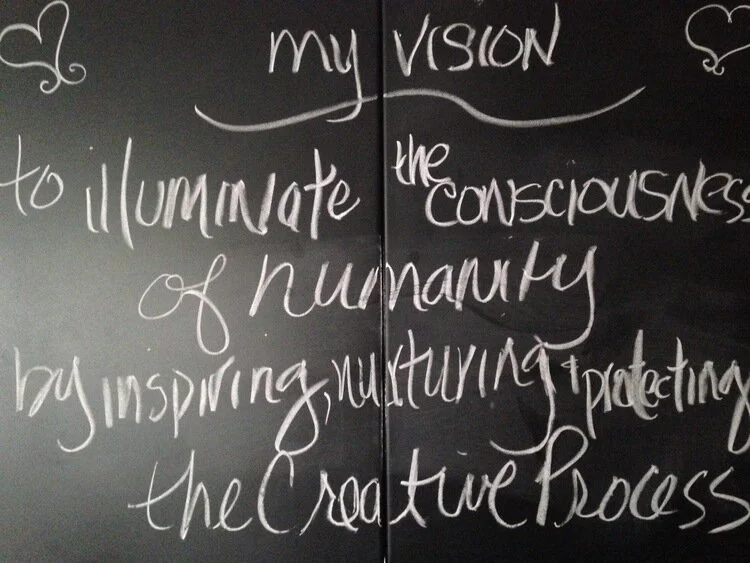 my VISION
to illuminate the CONSCIOUSNESS
of humanity
by inspiring, nurturing & protecting
the Creative Process